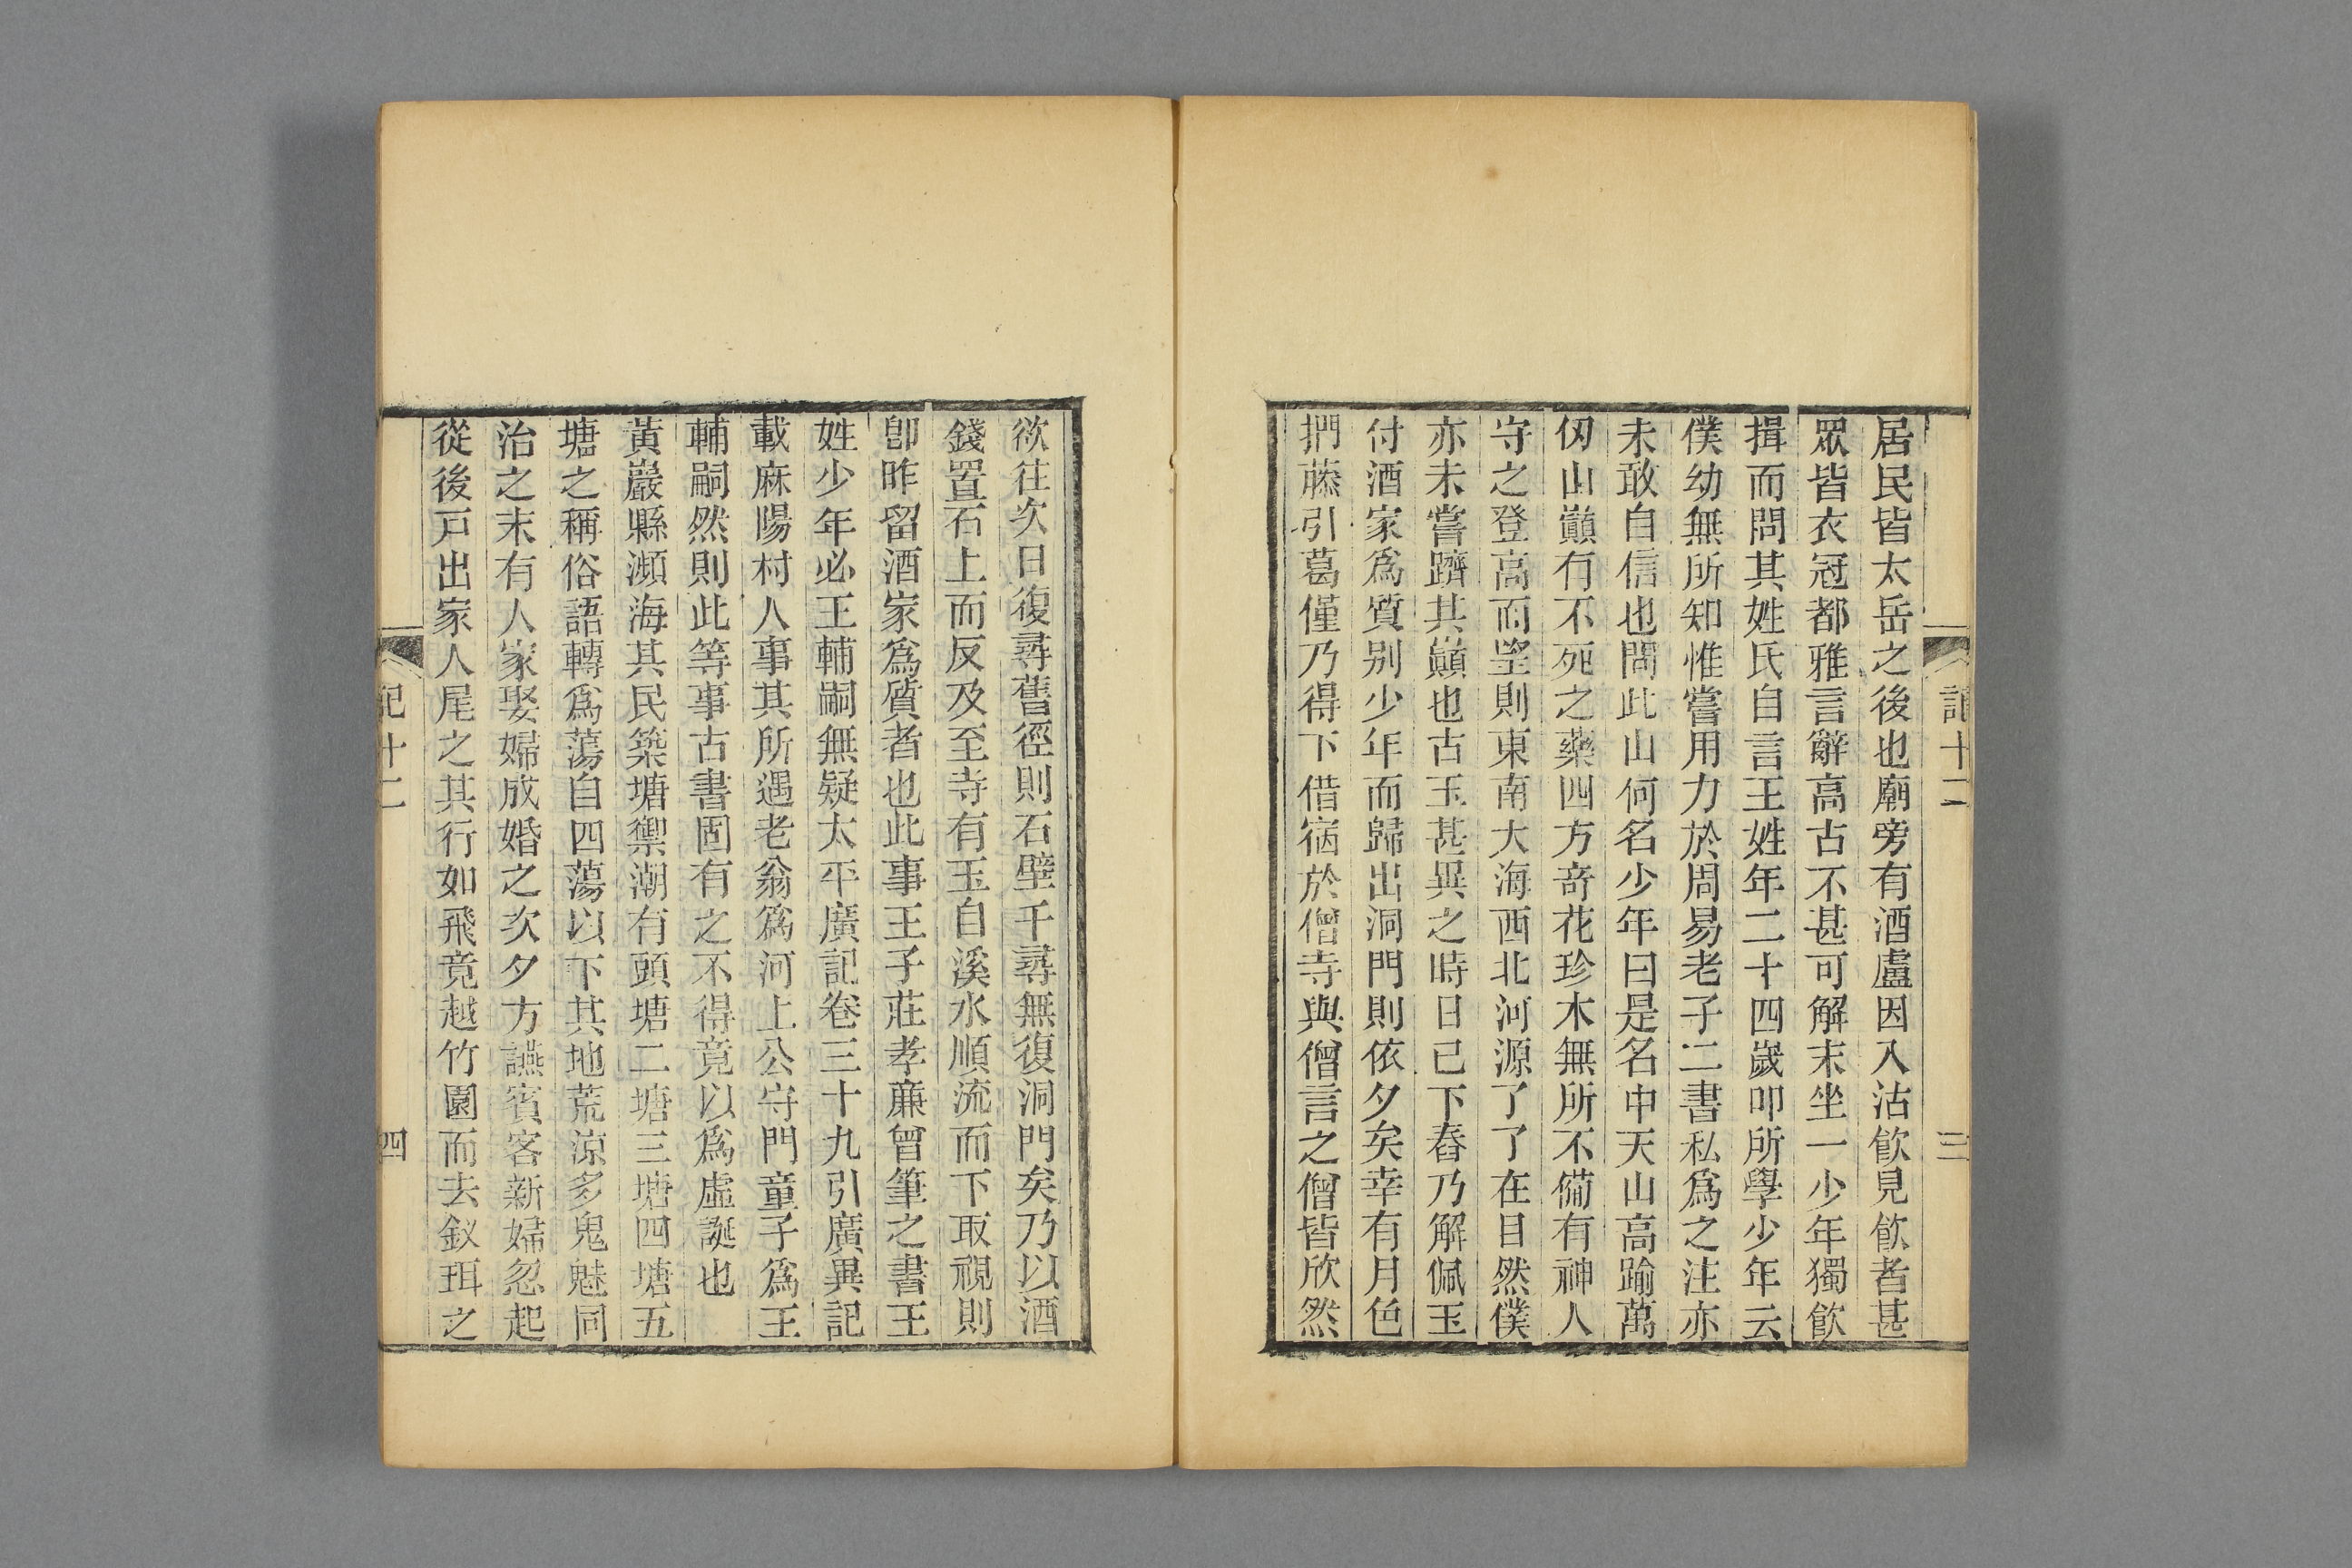 記十二
三
居民皆太岳之後也廟旁有酒盧因入沽飮見飮者甚
眾皆衣冠都雅言辭高古不甚可解末坐一少年獨飮
揖而問其姓氏自言王姓年二十四歲叩所學少年云
僕幼無所知惟嘗用力於周易老子二書私爲之注亦
未敢自信也問此山何名少年曰是名中天山高踰萬
仞山巔有不死之藥四方奇花珍木無所不備有神人
守之登高而望則東南大海西北河源了了在目然僕
亦未嘗躋其巔也古玉甚異之時日已下舂乃解佩玉
付酒家爲質别少年而歸出洞門則依夕矣幸有月色
捫藤引葛僅乃得下借宿於僧寺與僧言之僧皆欣然
欲往次日復尋舊徑則石壁千尋無復洞門矣乃以酒
錢置石上而反及至寺有玉自溪水順流而下取視則
卽昨留酒家爲質者也此事王子莊孝廉曾筆之書王
姓少年必王輔嗣無疑太平廣記卷三十九引廣異記
載麻陽村人事其所遇老翁爲河上公守門童子爲王
輔嗣然則此等事古書固有之不得竟以爲虛誕也
黃巖縣瀕海其民築塘禦潮有頭塘二塘三塘四塘五
塘之稱俗語轉爲蕩自四蕩以下其地荒涼多鬼魅同
治之末有人家娶婦成婚之次夕方讌賓客新婦忽起
從後戸出家人尾之其行如飛竟越竹園而去釵珥之
記十二
四